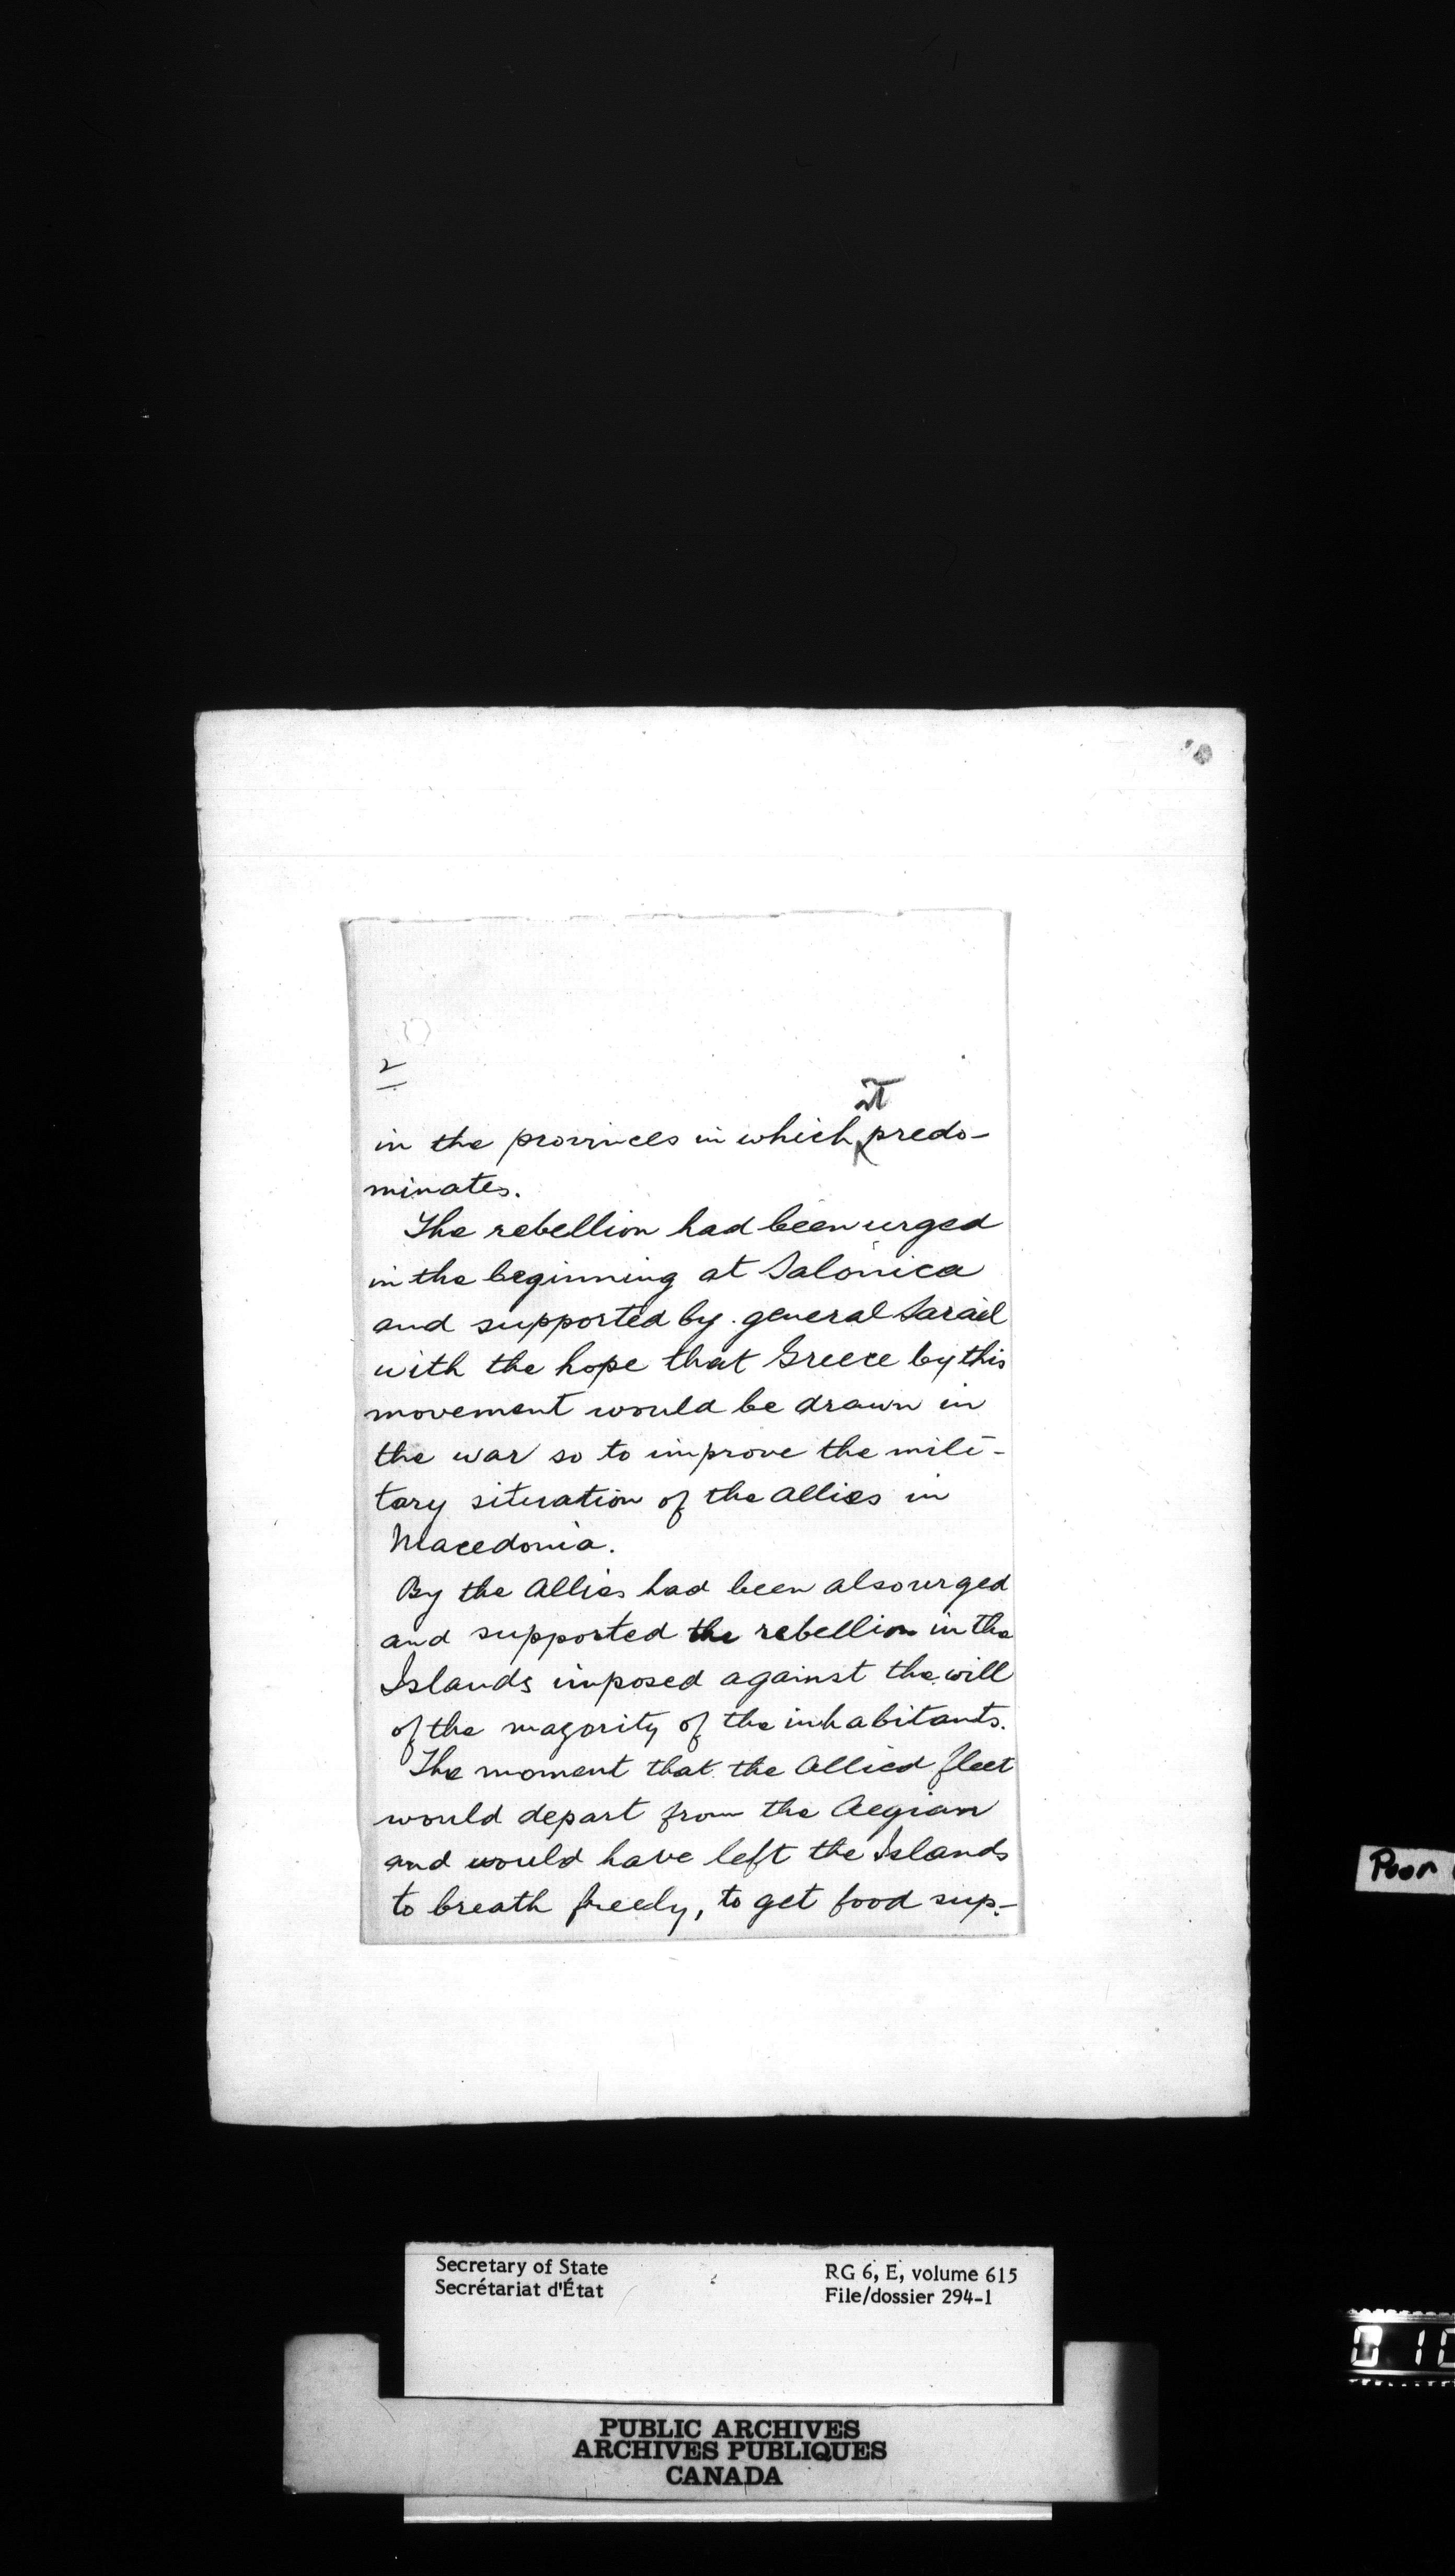 2
it
in the provinces in which predo-
minates.
The rebellion had been urged
in the beginning at Salonica
and supported by general Sarail
with the hope that Greece by this
movement would be drawn in
the war so to improve the mili-
tary situation of the Allies in
Macedonia.
By the Allies had been also urged
and supported the rebellion in the
Islands imposed against the will
of the magority of the inhabitants.
The moment that the Allied fleet
would depart from the Aegian
and would have left the Islands
to breath freely, to get food sup-
Poor
Secretary of State
Secrétariat d'État
RG 6, E, volume 615
File/dossier 294-1
PUBLIC ARCHIVES
ARCHIVES PUBLIQUES
CANADA